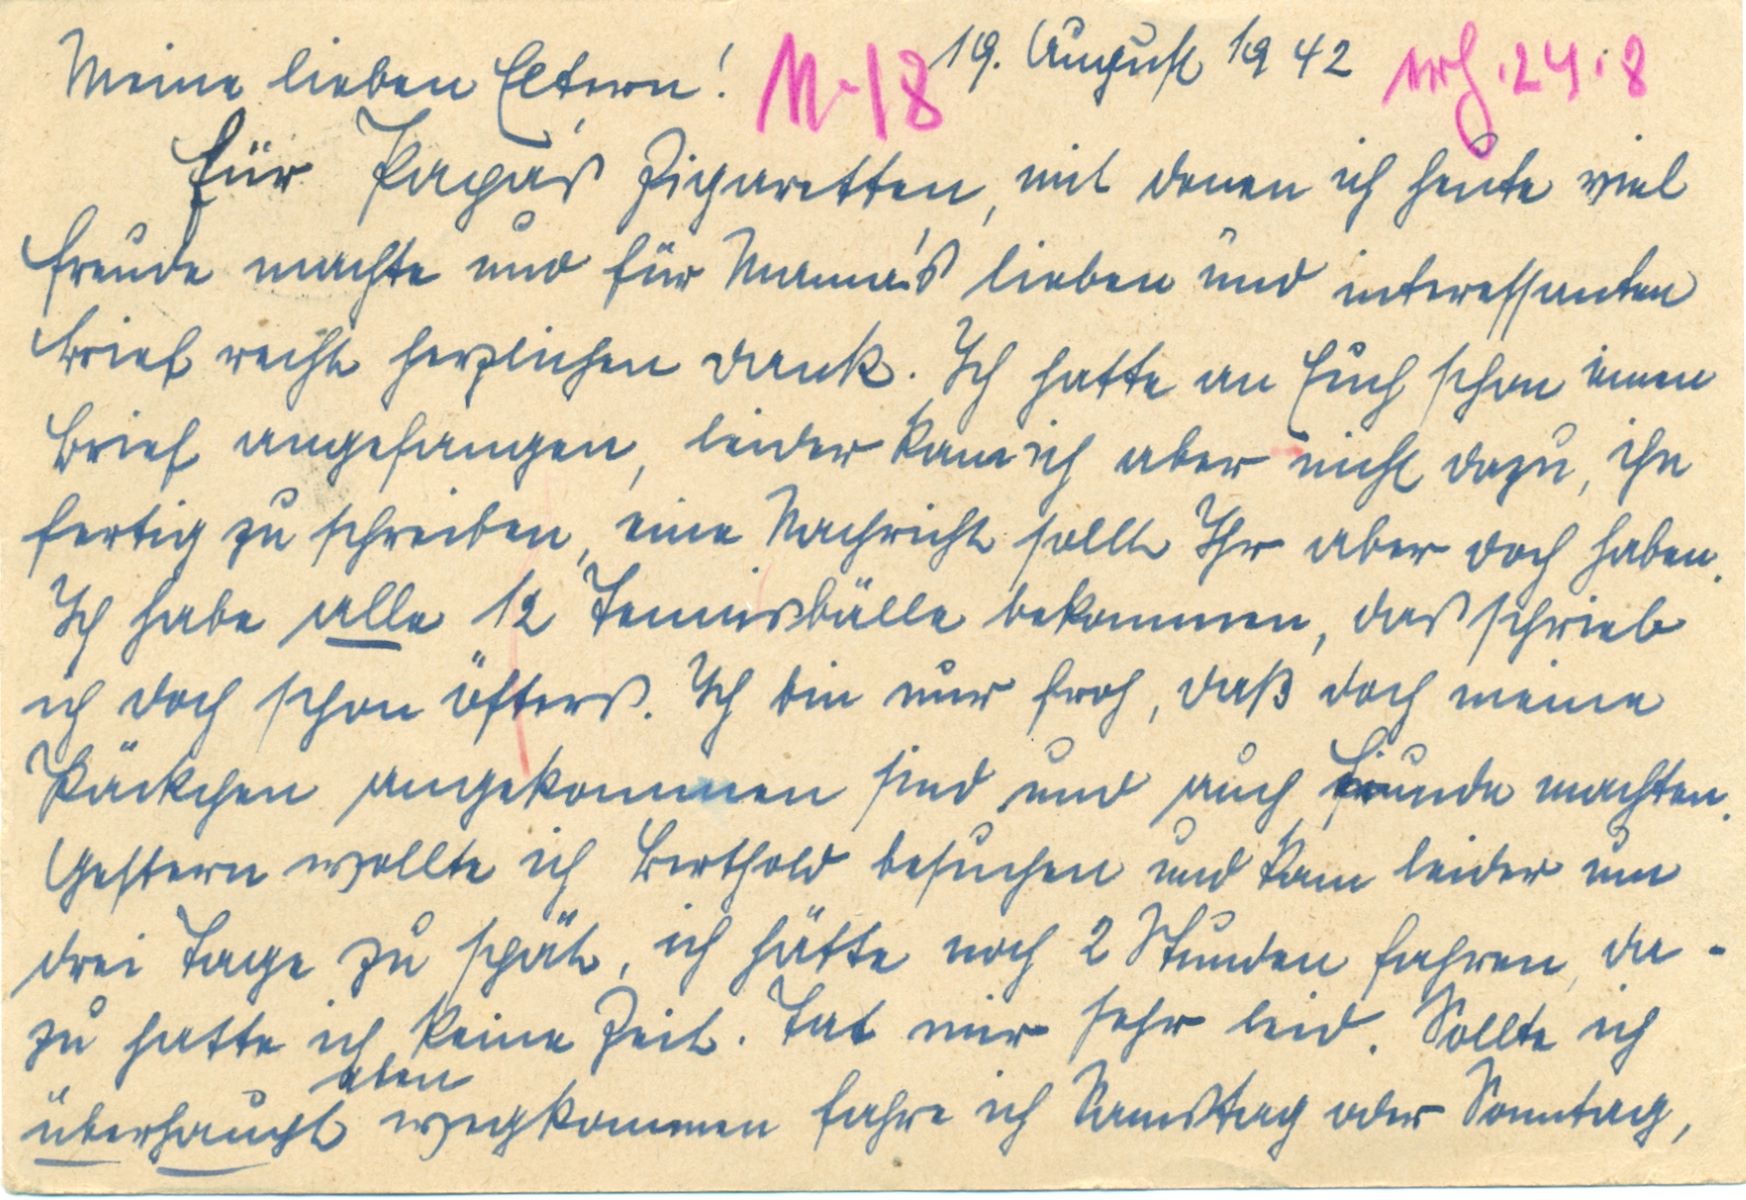 19. August 1942
Meine lieben Eltern! N-18 24.8
Für Papa's Zigaretten, mit denen ich heute viel
Freude machte und für Mama's lieben und interessanten
Brief recht herzlichen Dank. Ich hatte an Euch schon einen
Brief angefangen, leider kam ich aber nicht dazu, ihn
fertig zu schreiben, eine Nachricht sollt Ihr aber doch haben.
Ich habe alle 12 Tennisbälle bekommen, das schrieb
ich doch schon öfters. Ich bin nur froh, daß doch meine
Päckchen angekommen sind und auch Freude machten.
Gestern wollte ich Berthold besuchen und kam leider um
drei Tage zu spät, ich hätte noch 2 Stunden fahren, da-
zu hatte ich keine Zeit. Tat mir sehr leid. Sollte ich
eben
überhaupt wegkommen fahre ich Samstag oder Sonntag,